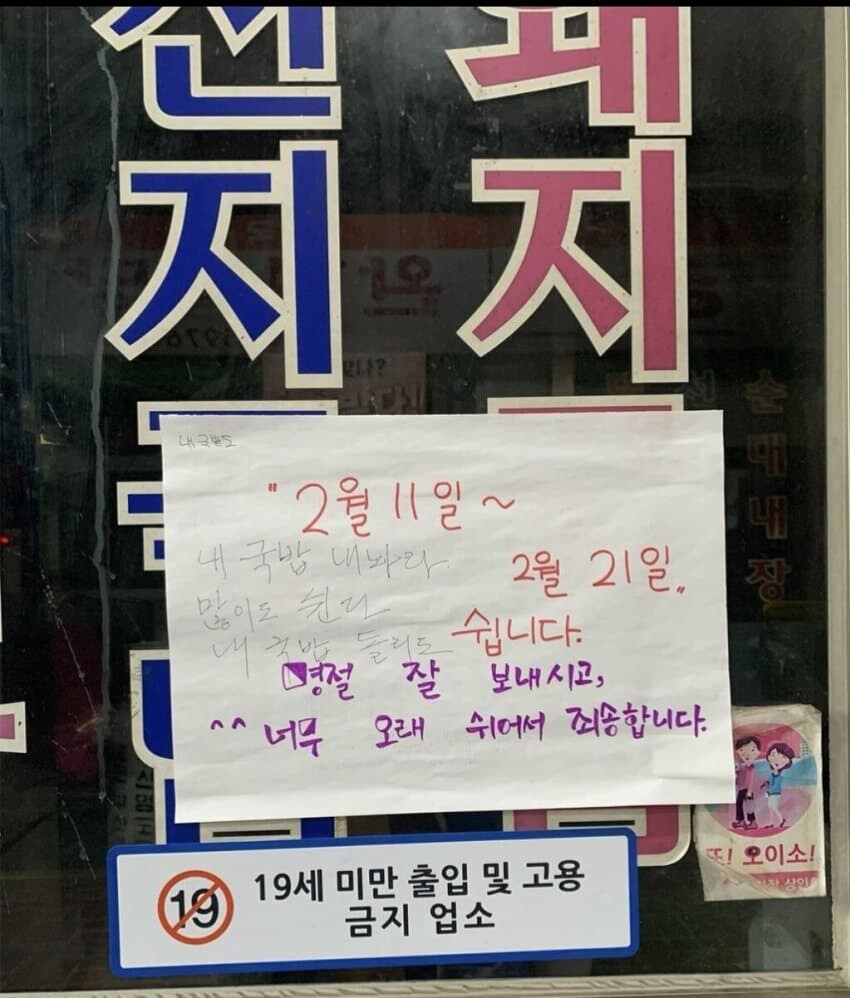 전 돼
지 지
순대내장
내 국밥도
"2월 11일 ~
2월 21일"
쉽니다.
내 국밥 내놔라
많이도 쉰다
내 국밥 돌리도
명절 잘 보내시고,
^^ 너무 오래 쉬어서 죄송합니다.
또! 오이소!
19
19세 미만 출입 및 고용
금지 업소